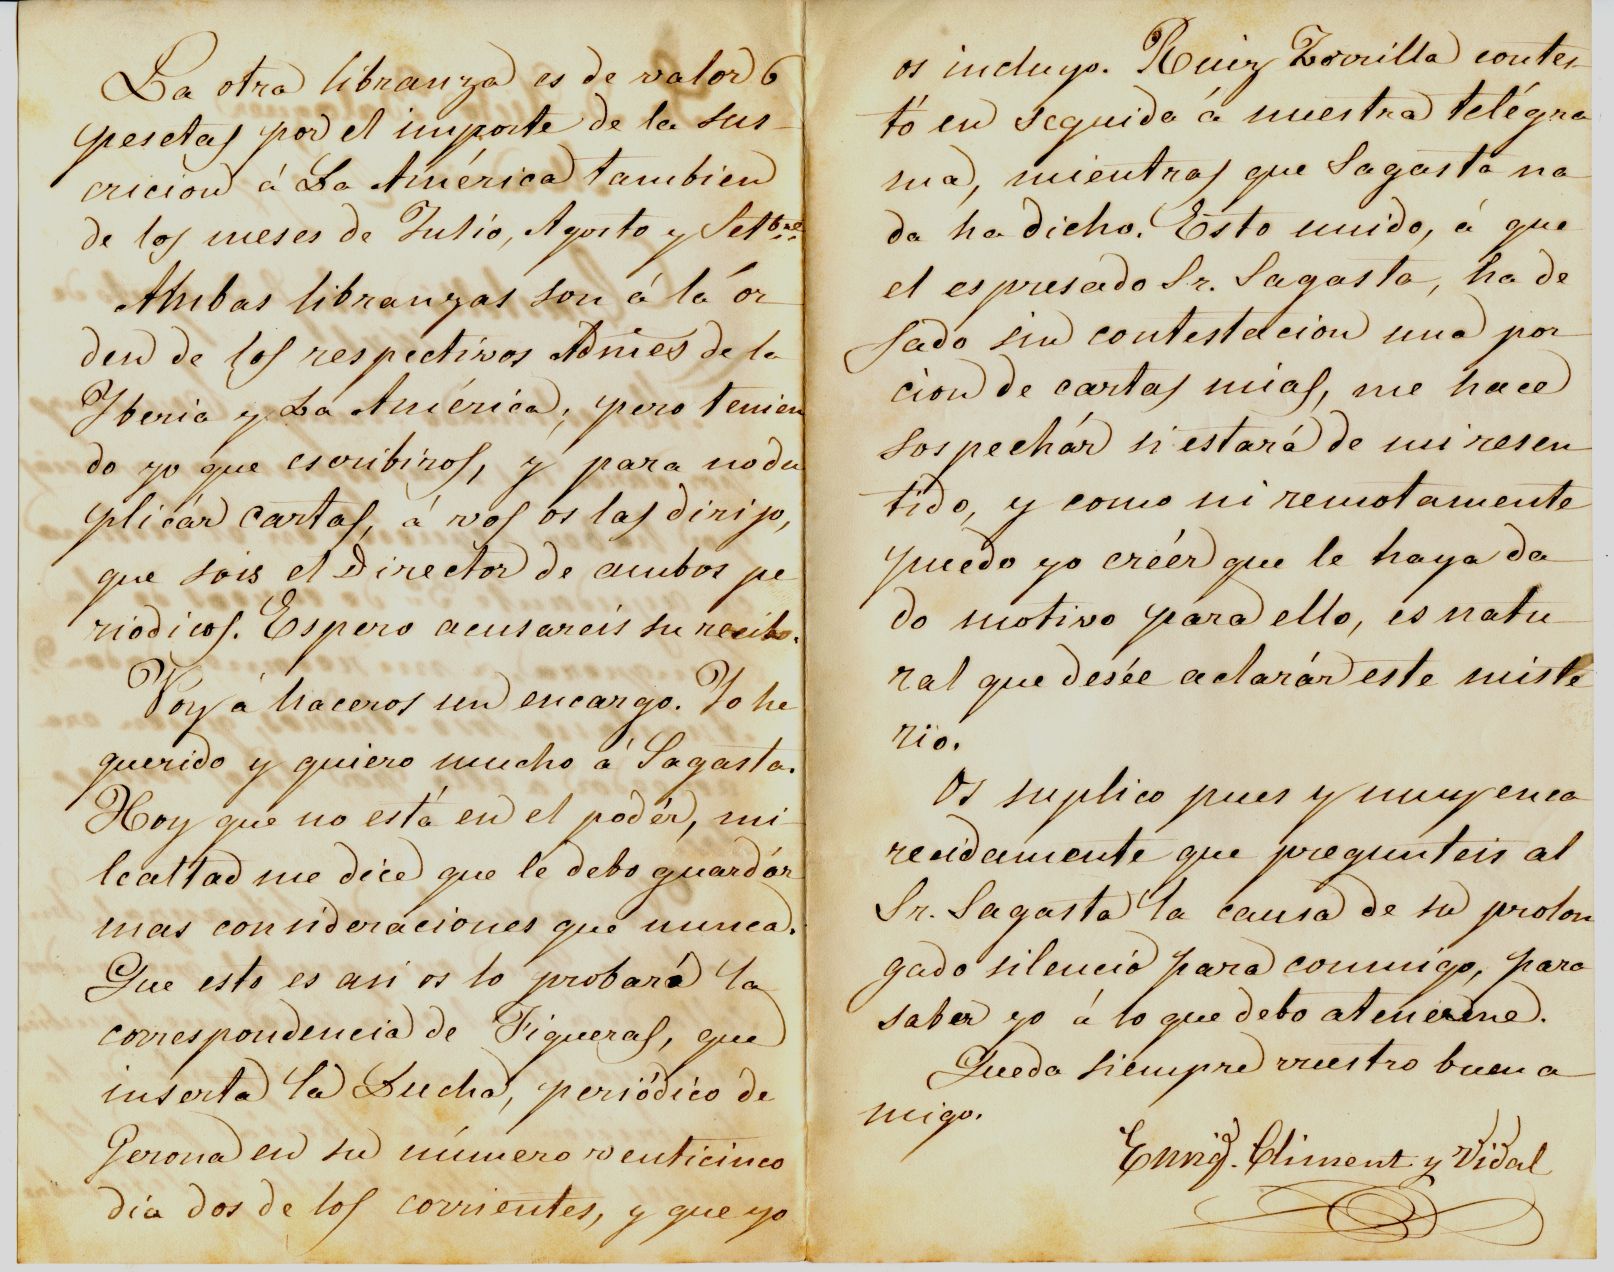 La otra libranza es de valor 6
pesetas por el importe de la sus-
cricion á La América tambien
de los meses de Julio, Agosto y Setbre
Ambas libranzas son á la ór
den de los respectivos Admes de la
Iberia y La América, pero tenien
do yo que escribiros, y para no du
plicár cartas, á vos os las dirijo,
que sois el Director de ambos pe
riodicos. Espero acusareis su recibo.
Voy á haceros un encargo. Yo he
querido y quiero mucho á Sagasta.
Hoy que no está en el podér, mi
lealtad me dice que le debo guardár
mas consideraciones que nunca.
Que esto es asi os lo probará la
correspondencia de Figueras, que
inserta la Lucha, periódico de
Gerona en su número venticinco
dia dos de los corrientes, y que yo
os incluyo. Ruiz Zorrilla contes-
tó en seguida á nuestra telégra
ma, mientras que Sagasta na
da ha dicho. Esto unido, á que
el espresado Sr. Sagasta, ha de
jado sin contestacion una por
cion de cartas mias, me hace
sospechár si estará de mi resen
tido, y como ni remotamente
puedo yo créer que le haya da
do motivo para ello, es natu
ral que desée aclarár este miste
rio.
Os suplico pues y muy enca
recidamente que pregunteis al
Sr. Sagasta la causa de su prolon
gado silencio para conmigo, para
saber yo á lo que debo atenerme.
Queda siempre vuestro buen a
migo.
Enriq. Climent y Vidal